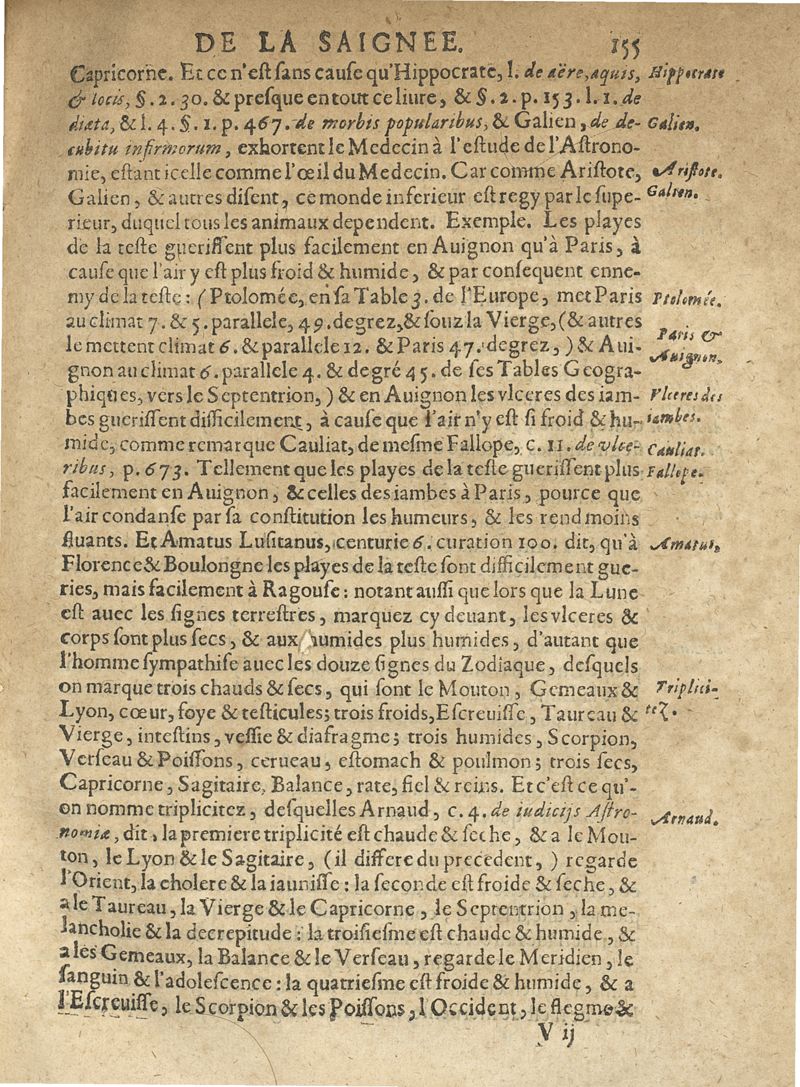 DE LA SAIGNEE. 155
Capricorne. Et ce n'est sans cause qu'Hippocrate, l. de aëre, aquis, Hippocrate
& locis, §. 2. 30. & presque en tout ce liure, & §. 2. p. 153. l. 1. de
diæta, & l. 4. §. 1. p. 467. de morbis popularibus, & Galien, de de- Galien.
cubitu infirmorum, exhortent le Medecin à l'estude de l'Astrono-
mie, estant icelle comme l'œil du Medecin. Car comme Aristote, Aristote.
Galien, & autres disent, ce monde inferieur est regy par le supe- Galien.
rieur, duquel tous les animaux dependent. Exemple. Les playes
de la teste guerissent plus facilement en Auignon qu'à Paris, à
cause que l'air y est plus froid & humide, & par consequent enne-
my de la teste: (Ptolomée, en sa Table 3. de l'Europe, met Paris Ptolomée.
au climat 7. & 5. parallele, 49. degrez, & souz la Vierge, (& autres
le mettent climat 6. & parallele 12. & Paris 47. degrez,) & Aui- Paris &
gnon au climat 6. parallele 4. & degré 45. de ses Tables Geogra- Auignon.
phiques, vers le Septentrion,) & en Auignon les vlceres des iam- Vlceres des
bes guerissent difficilement, à cause que l'air n'y est si froid & hu- iambes.
mide, comme remarque Cauliat, de mesme Fallope, c. 11. de vlce- Cauliat.
ribus, p. 673. Tellement que les playes de la teste guerissent plus Fallope.
facilement en Auignon, & celles des iambes à Paris, pource que
l'air condanse par sa constitution les humeurs, & les rend moins
fluants. Et Amatus Lusitanus, centurie 6. curation 100. dit, qu'à Amatus.
Florence & Boulongne les playes de la teste sont difficilement gue-
ries, mais facilement à Ragouse: notant aussi que lors que la Lune
est auec les signes terrestres, marquez cy deuant, les vlceres &
corps sont plus secs, & aux humides plus humides, d'autant que
l'homme sympathise auec les douze signes du Zodiaque, desquels
on marque trois chauds & secs, qui sont le Mouton, Gemeaux & Triplici-
Lyon, cœur, foye & testicules; trois froids, Escreuisse, Taureau & tez.
Vierge, intestins, vessie & diafragme; trois humides, Scorpion,
Verseau & Poissons, cerueau, estomach & poulmon; trois secs,
Capricorne, Sagitaire, Balance, rate, fiel & reins. Et c'est ce qu'-
on nomme triplicitez, desquelles Arnaud, c. 4. de iudicijs Astro- Arnaud.
nomiæ, dit, la premiere triplicité est chaude & seche, & a le Mou-
ton, le Lyon & le Sagitaire, (il differe du precedent,) regarde
l'Orient, la cholere & la iaunisse: la seconde est froide & seche, &
a le Taureau, la Vierge & le Capricorne, le Septentrion, la me-
lancholie & la decrepitude: la troisiesme est chaude & humide, &
a les Gemeaux, la Balance & le Verseau, regarde le Meridien, le
sanguin & l'adolescence: la quatriesme est froide & humide, & a
l'Escreuisse, le Scorpion & les Poissons, l'Occident, le flegme &
V ij